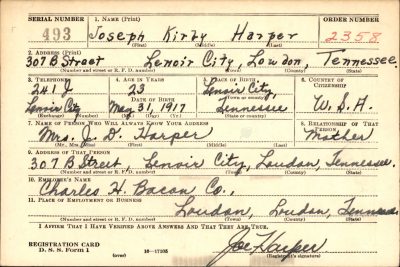 SERIAL NUMBER 1. NAME (Print) ORDER NUMBER
493 Joseph Kirby Harper 2358
(First) (Middle) (Last)
2. ADDRESS (Print)
307 B Street Lenoir City, Loudon, Tennessee.
(Number and street or R. F. D. number) (Town) (County) (State)
3. TELEPHONE 4. AGE IN YEARS 5. PLACE OF BIRTH 6. COUNTRY OF CITIZENSHIP
241 J 23 Lenoir City,
DATE OF BIRTH (Town or county)
Lenoir City May 31, 1917 Tennessee U.S.A.
(Exchange) (Number) (Mo.) (Day) (Yr.) (State or country)
7. NAME OF PERSON WHO WILL ALWAYS KNOW YOUR ADDRESS 8. RELATIONSHIP OF THAT PERSON
Mrs. J. D. Harper Mother
(Mr., Mrs., Miss) (First) (Middle) (Last)
9. ADDRESS OF THAT PERSON
307 B Street, Lenoir City, Loudon, Tennessee.
(Number and street or R. F. D. number) (Town) (County) (State)
10. EMPLOYER'S NAME
Charles H. Bacon Co.,
11. PLACE OF EMPLOYMENT OR BUSINESS
Loudon, Loudon, Tennessee
(Number and street or R. F. D. number) (Town) (County) (State)
I AFFIRM THAT I HAVE VERIFIED ABOVE ANSWERS AND THAT THEY ARE TRUE.
REGISTRATION CARD Joe Harper
D. S. S. Form 1 (over) 16—17105 (Registrant's signature)